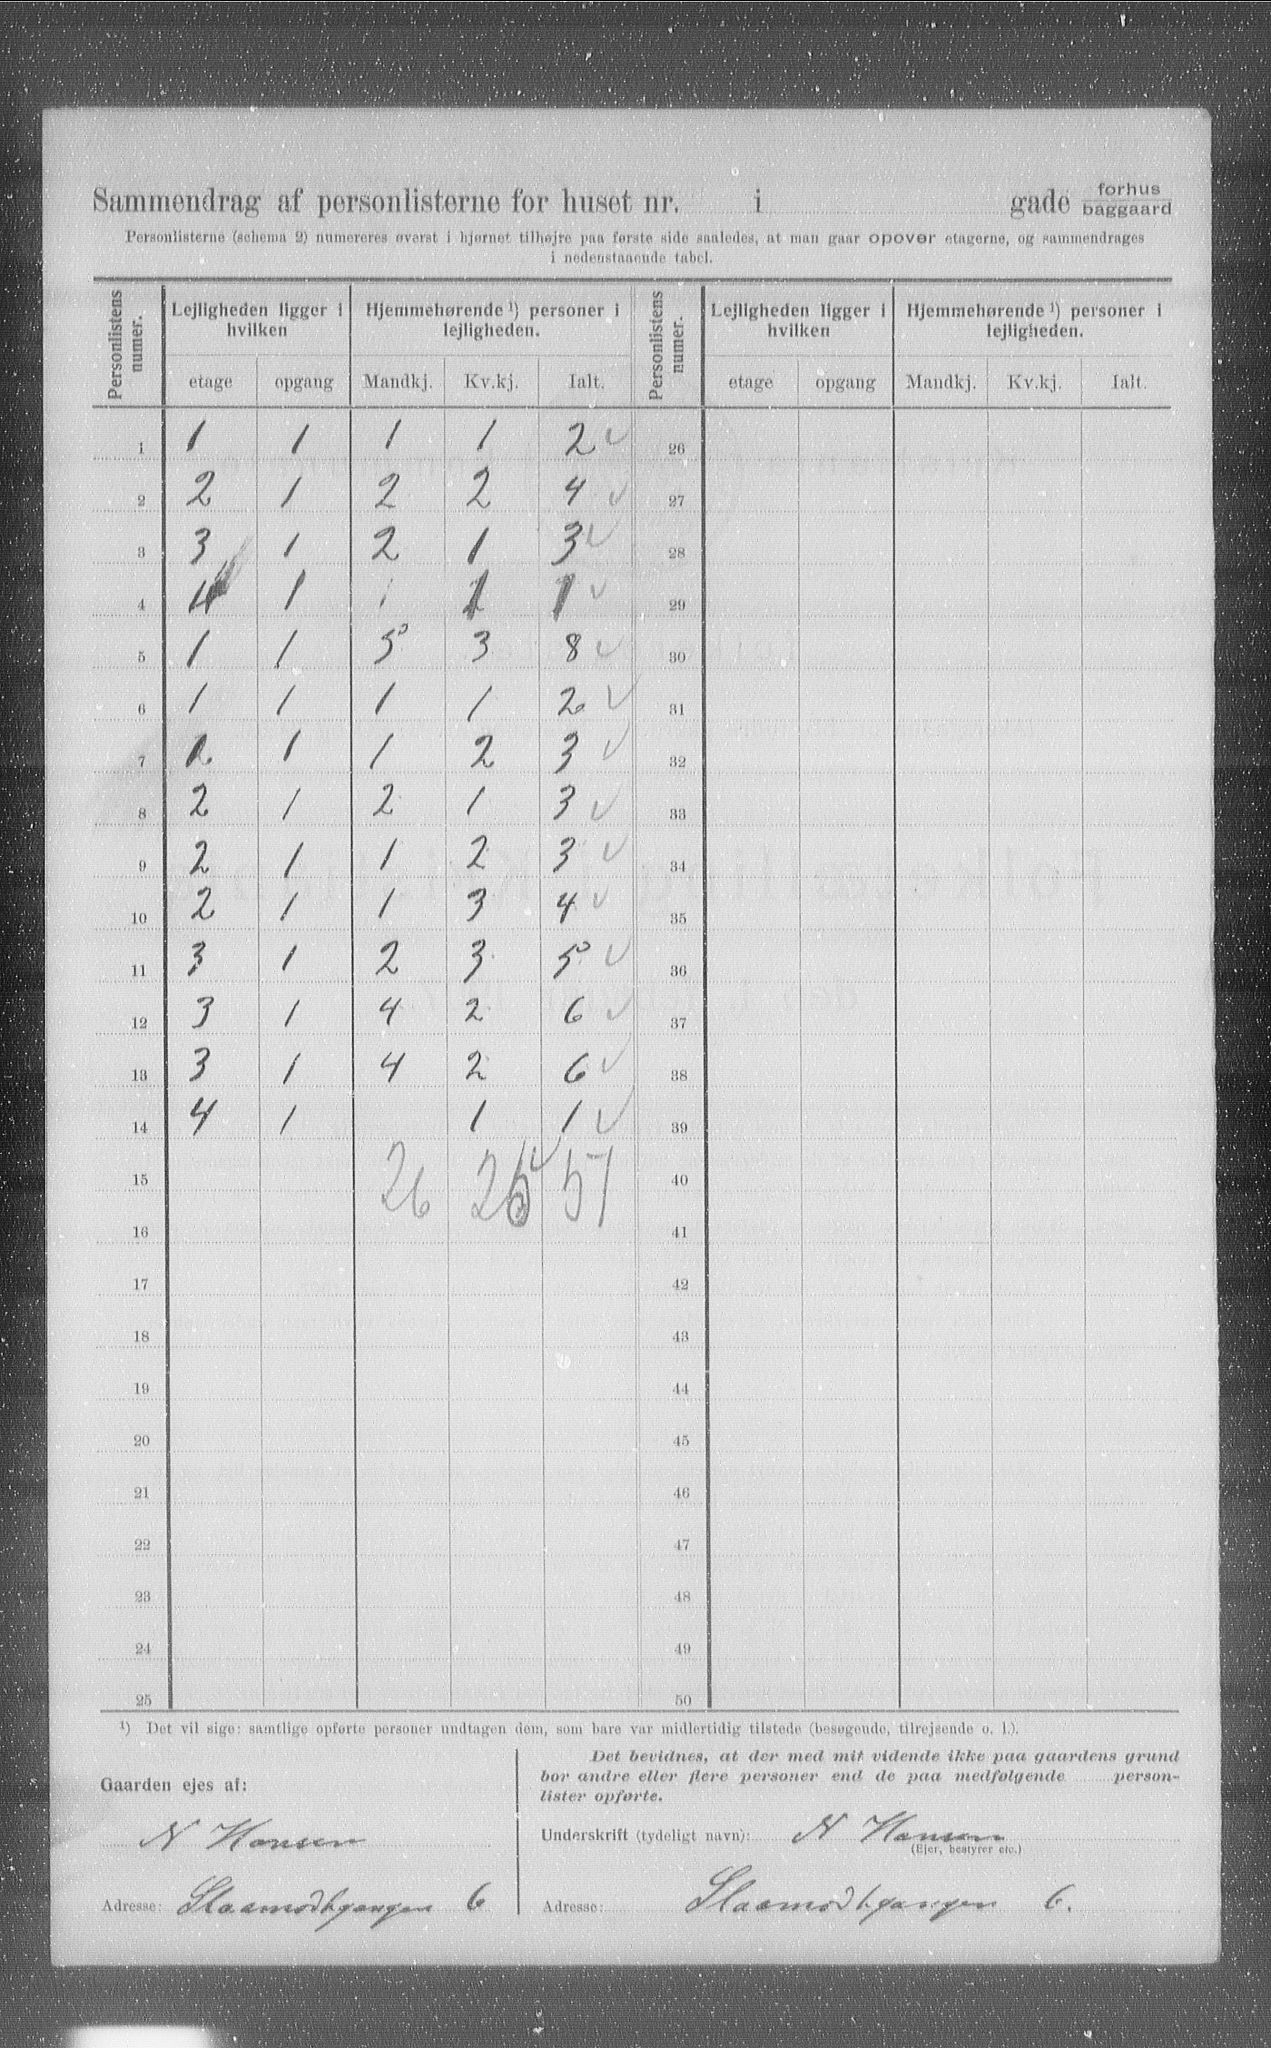 Sammendrag af personlisterne for huset nr. i gade forhus baggaard
Personlisterne (schema 2) numereres øverst i hjørnet tilhøjre paa første side saaledes, at man gaar opover etagerne, og sammendrages
i nedenstaaende tabel.
Personlistens numer. Lejligheden ligger i hvilken Hjemmehørende ¹) personer i lejligheden. Personlistens numer. Lejligheden ligger i hvilken Hjemmehørende ¹) personer i lejligheden.
etage opgang Mandkj. Kv.kj. Ialt. etage opgang Mandkj. Kv.kj. Ialt.
1 1 1 1 1 2 26
2 2 1 2 2 4 27
3 3 1 2 1 3 28
4 4 1 1 1 29
5 1 1 5 3 8 30
6 1 1 1 1 2 31
7 2 1 1 2 3 32
8 2 1 2 1 3 33
9 2 1 1 2 3 34
10 2 1 1 3 4 35
11 3 1 2 3 5 36
12 3 1 4 2 6 37
13 3 1 4 2 6 38
14 4 1 1 1 39
15 26 25 51 40
16 41
17 42
18 43
19 44
20 45
21 46
22 47
23 48
24 49
25 50
¹) Det vil sige: samtlige opførte personer undtagen dem, som bare var midlertidig tilstede (besøgende, tilrejsende o. l.).
Gaarden ejes af:
N Hansen
Adresse: Slaamodtgangen 6
Det bevidnes, at der med mit vidende ikke paa gaardens grund
bor andre eller flere personer end de paa medfølgende person-
lister opførte.
Underskrift (tydeligt navn): N Hansen
(Ejer, bestyrer etc.)
Adresse: Slaamodtgangen 6.